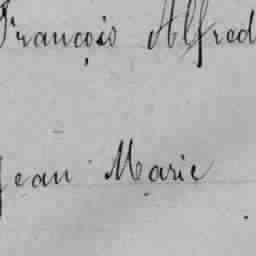 François Alfred
Jean Marie